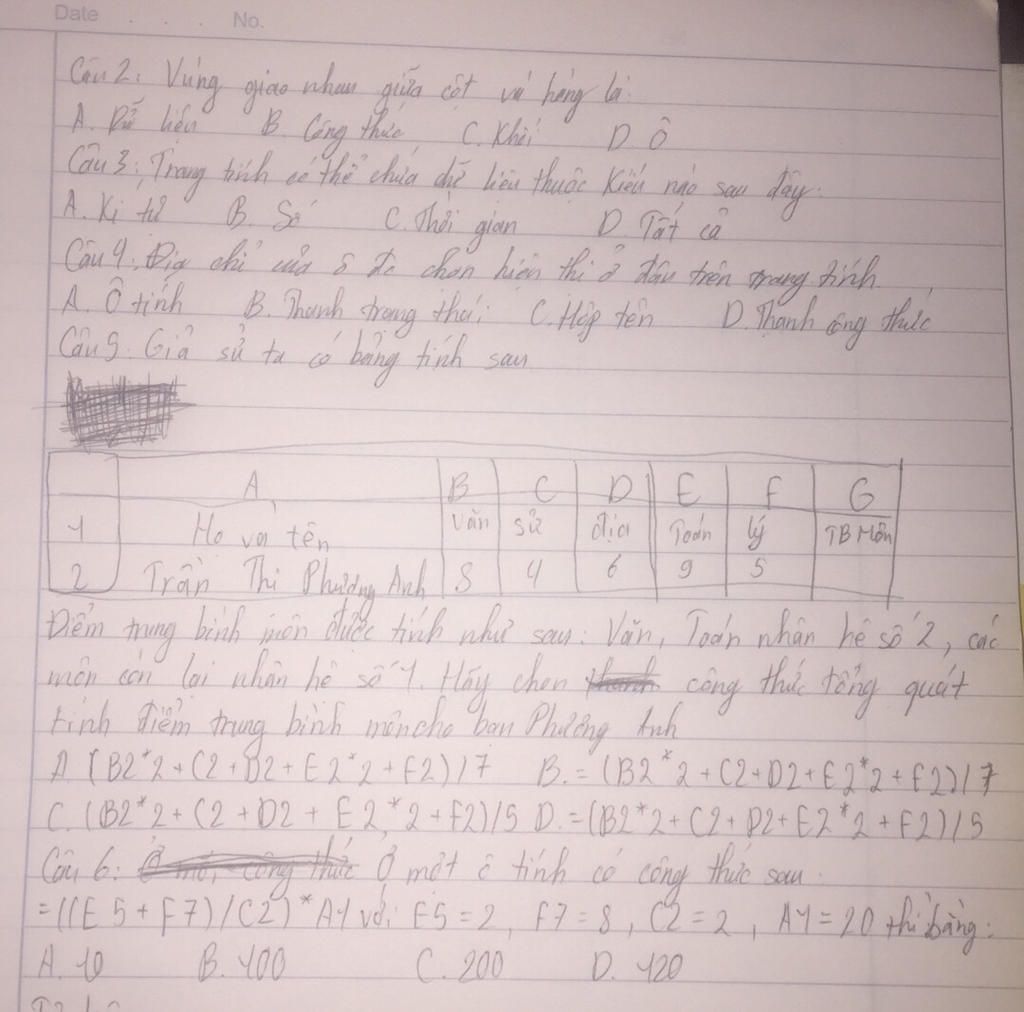 Date . . . No.
Câu 2: Vùng giao nhau giữa cột và hàng là:
A. Dữ liệu B. Công thức C. Khối D. Ô
Câu 3: Trang tính có thể chứa dữ liệu thuộc kiểu nào sau đây:
A. Kí tự B. Số C. Thời gian D. Tất cả
Câu 4: Địa chỉ của ô đc chọn hiển thị ở đâu trên trang tính.
A. Ô tính B. Thanh trạng thái C. Hộp tên D. Thanh công thức
Câu 5: Giả sử ta có bảng tính sau
A B C D E F G
1 Họ và tên Văn sử địa Toán lý TB Môn
2 Trần Thị Phương Anh 8 4 6 9 5
Điểm trung bình môn được tính như sau: Văn, Toán nhân hệ số 2, các
môn còn lại nhân hệ số 1. Hãy chọn công thức tổng quát
tính điểm trung bình môn cho bạn Phương Anh
A. (B2*2+C2+D2+E2*2+F2)/7 B. =(B2*2+C2+D2+E2*2+F2)/7
C. (B2*2+C2+D2+E2*2+F2)/5 D. =(B2*2+C2+D2+E2*2+F2)/5
Câu 6: Ở một ô tính có công thức sau:
=((E5+F7)/C2)*A1 với E5=2, F7=8, C2=2, A1=20 thì bằng:
A. 10 B. 100 C. 200 D. 120